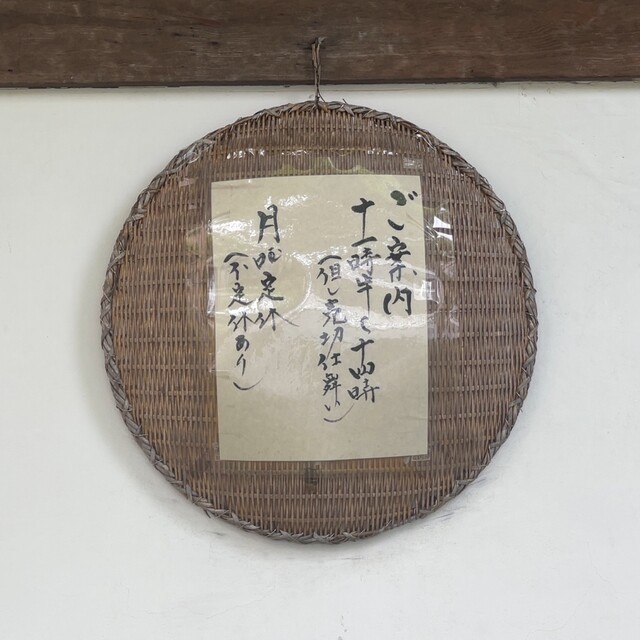 ご案内
十一時半〜十四時
(但し売切仕舞い)
月曜定休
(不定休あり)